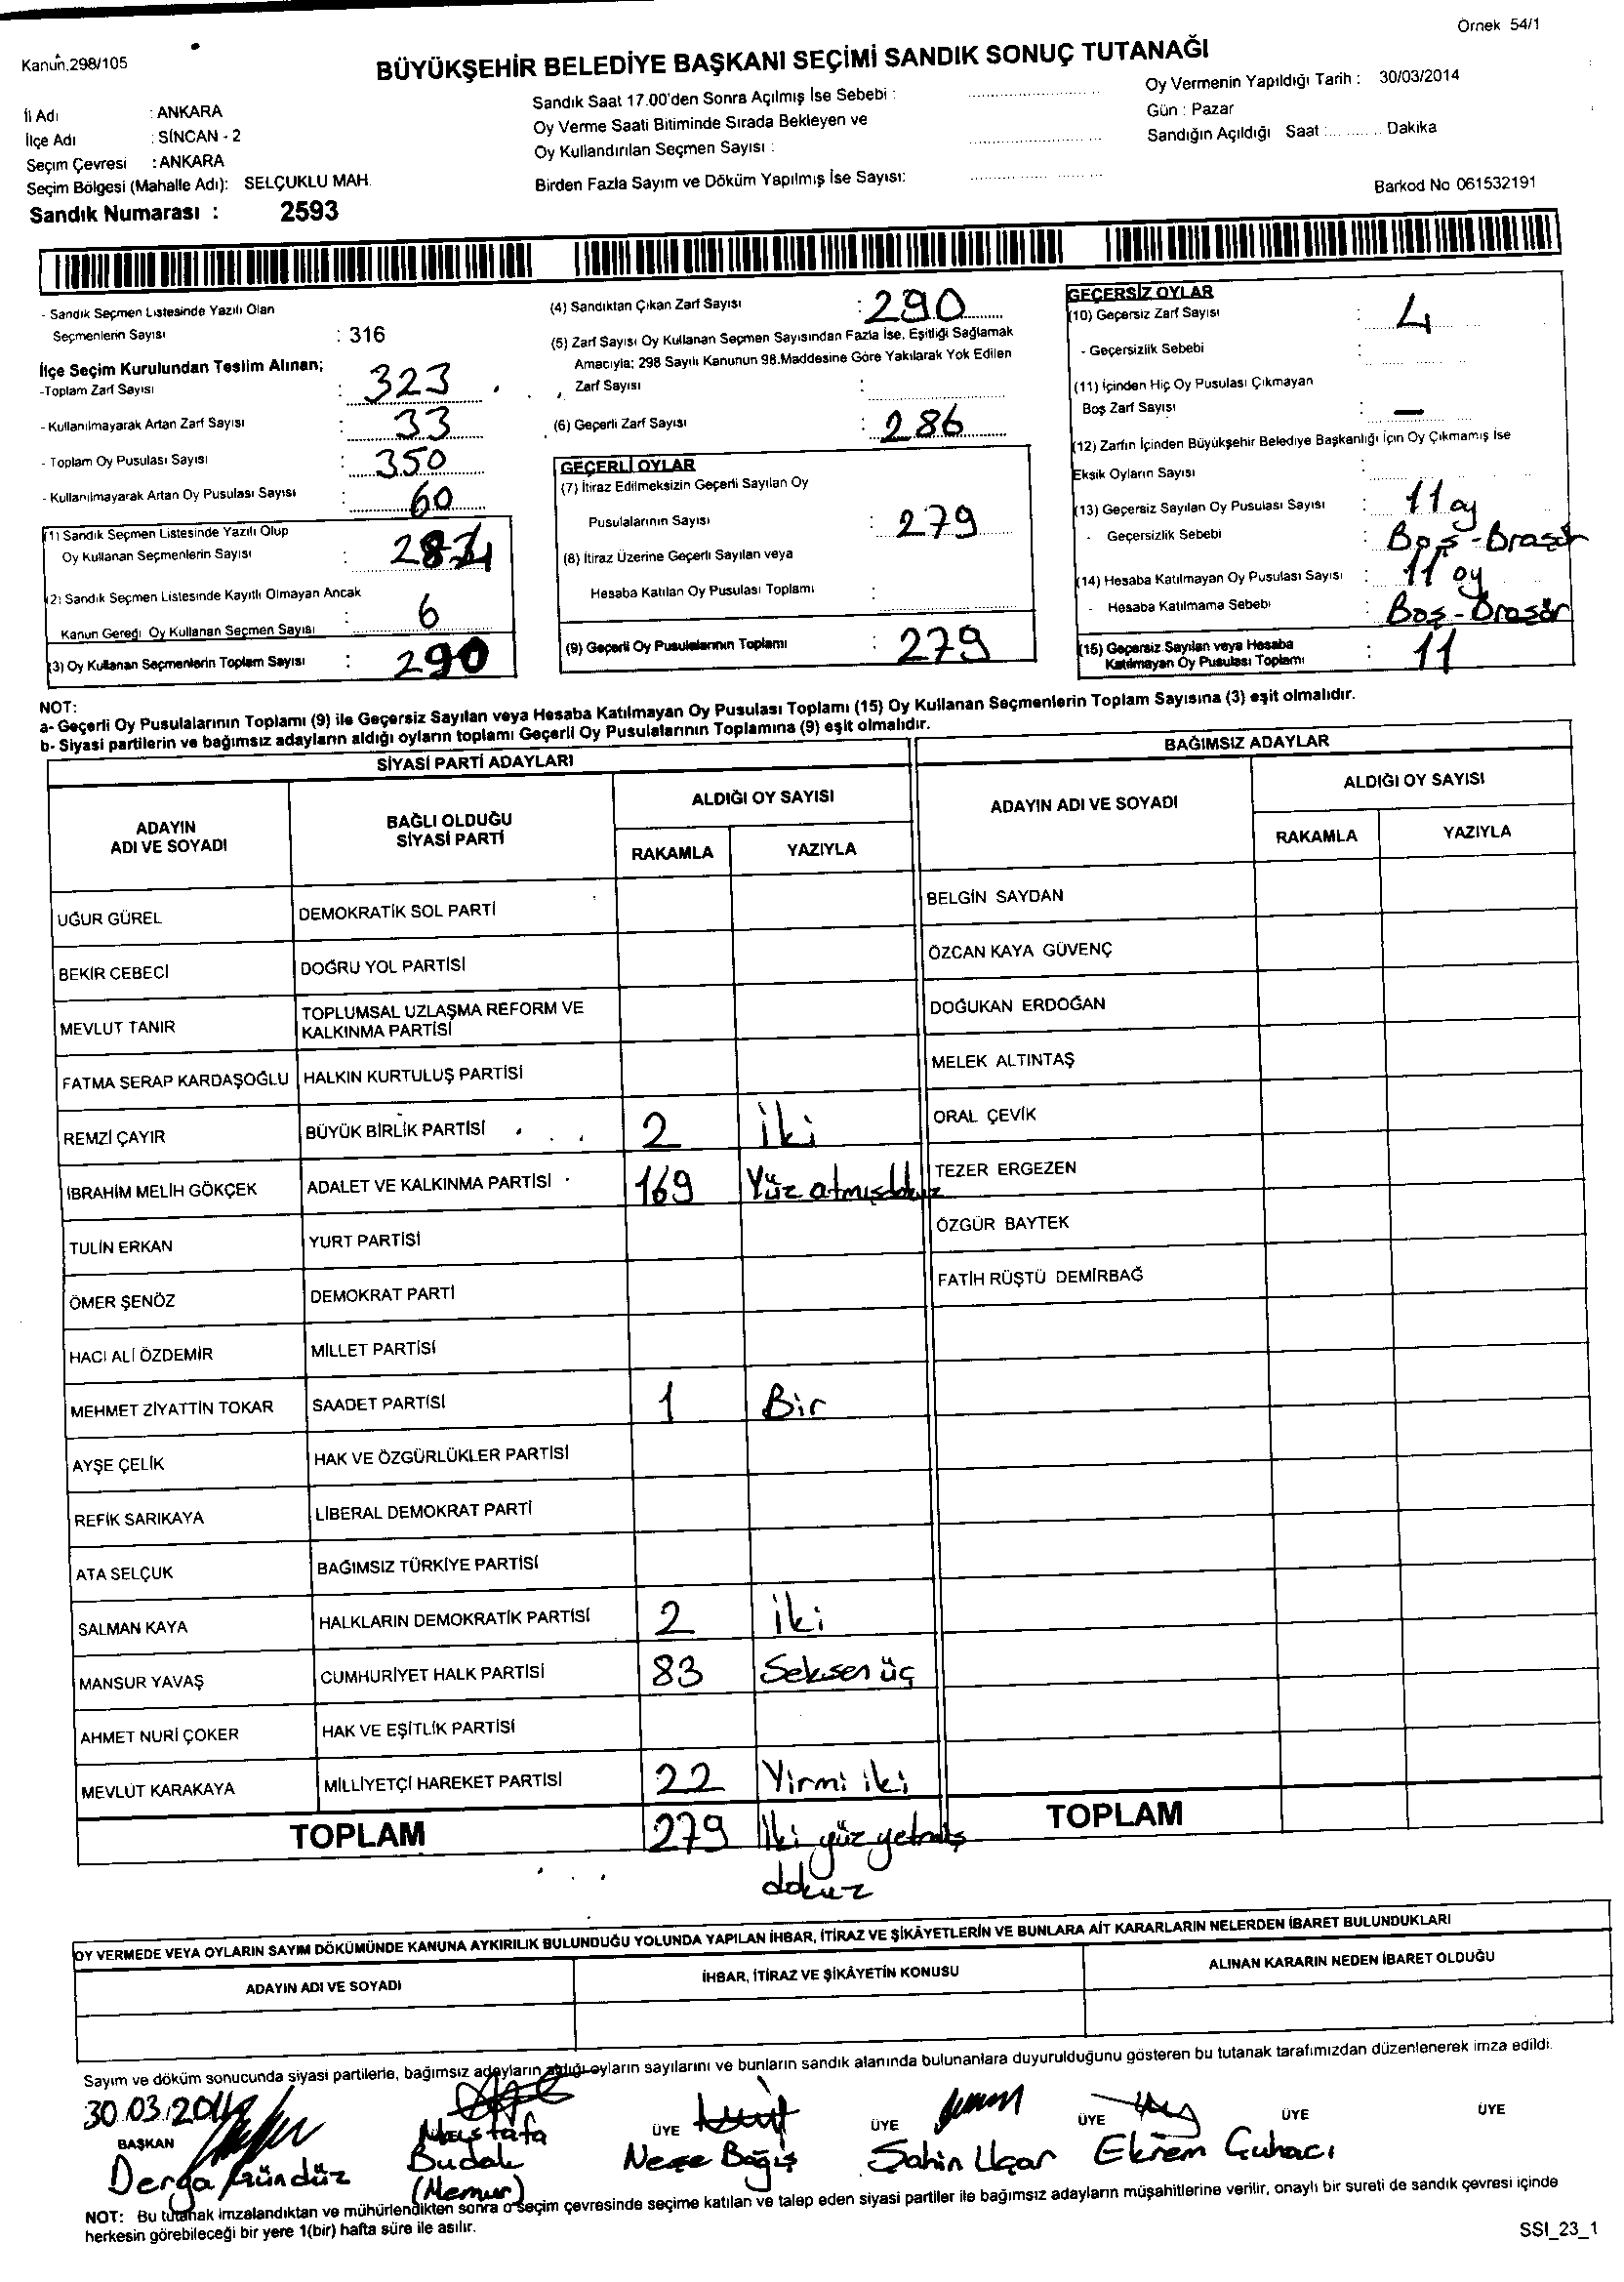 Örnek 54/1
Kanun.298/105
BÜYÜKŞEHİR BELEDİYE BAŞKANI SEÇİMİ SANDIK SONUÇ TUTANAĞI
İl Adı : ANKARA
İlçe Adı : SİNCAN - 2
Seçim Çevresi : ANKARA
Seçim Bölgesi (Mahalle Adı): SELÇUKLU MAH.
Sandık Numarası : 2593
Sandık Saat 17.00'den Sonra Açılmış İse Sebebi :
Oy Verme Saati Bitiminde Sırada Bekleyen ve
Oy Kullandırılan Seçmen Sayısı :
Birden Fazla Sayım ve Döküm Yapılmış İse Sayısı:
Oy Vermenin Yapıldığı Tarih : 30/03/2014
Gün : Pazar
Sandığın Açıldığı Saat : Dakika
Barkod No 061532191
- Sandık Seçmen Listesinde Yazılı Olan
Seçmenlerin Sayısı : 316
İlçe Seçim Kurulundan Teslim Alınan;
-Toplam Zarf Sayısı : 323
- Kullanılmayarak Artan Zarf Sayısı : 33
- Toplam Oy Pusulası Sayısı : 350
- Kullanılmayarak Artan Oy Pusulası Sayısı : 60
(1) Sandık Seçmen Listesinde Yazılı Olup
Oy Kullanan Seçmenlerin Sayısı : 284
(2) Sandık Seçmen Listesinde Kayıtlı Olmayan Ancak
Kanun Gereği Oy Kullanan Seçmen Sayısı : 6
(3) Oy Kullanan Seçmenlerin Toplam Sayısı : 290
(4) Sandıktan Çıkan Zarf Sayısı : 290
(5) Zarf Sayısı Oy Kullanan Seçmen Sayısından Fazla İse, Eşitliği Sağlamak
Amacıyla; 298 Sayılı Kanunun 98.Maddesine Göre Yakılarak Yok Edilen
Zarf Sayısı :
(6) Geçerli Zarf Sayısı : 286
GEÇERLİ OYLAR
(7) İtiraz Edilmeksizin Geçerli Sayılan Oy
Pusulalarının Sayısı : 279
(8) İtiraz Üzerine Geçerli Sayılan veya
Hesaba Katılan Oy Pusulası Toplamı :
(9) Geçerli Oy Pusulalarının Toplamı : 279
GEÇERSİZ OYLAR
(10) Geçersiz Zarf Sayısı : 4
- Geçersizlik Sebebi :
(11) İçinden Hiç Oy Pusulası Çıkmayan
Boş Zarf Sayısı : —
(12) Zarfın İçinden Büyükşehir Belediye Başkanlığı İçin Oy Çıkmamış İse
Eksik Oyların Sayısı :
(13) Geçersiz Sayılan Oy Pusulası Sayısı : 11 oy
- Geçersizlik Sebebi : Boş-
(14) Hesaba Katılmayan Oy Pusulası Sayısı : 11 oy
- Hesaba Katılmama Sebebi : Boş-
(15) Geçersiz Sayılan veya Hesaba
Katılmayan Oy Pusulası Toplamı : 11
NOT:
a- Geçerli Oy Pusulalarının Toplamı (9) ile Geçersiz Sayılan veya Hesaba Katılmayan Oy Pusulası Toplamı (15) Oy Kullanan Seçmenlerin Toplam Sayısına (3) eşit olmalıdır.
b- Siyasi partilerin ve bağımsız adayların aldığı oyların toplamı Geçerli Oy Pusulalarının Toplamına (9) eşit olmalıdır.
SİYASİ PARTİ ADAYLARI
ADAYIN
ADI VE SOYADI
BAĞLI OLDUĞU
SİYASİ PARTİ
ALDIĞI OY SAYISI
RAKAMLA YAZIYLA
UĞUR GÜREL DEMOKRATİK SOL PARTİ
BEKİR CEBECİ DOĞRU YOL PARTİSİ
MEVLUT TANIR TOPLUMSAL UZLAŞMA REFORM VE
KALKINMA PARTİSİ
FATMA SERAP KARDAŞOĞLU HALKIN KURTULUŞ PARTİSİ
REMZİ ÇAYIR BÜYÜK BİRLİK PARTİSİ 2 İki
İBRAHİM MELİH GÖKÇEK ADALET VE KALKINMA PARTİSİ 169 Yüz atmışdokuz
TULİN ERKAN YURT PARTİSİ
ÖMER ŞENÖZ DEMOKRAT PARTİ
HACI ALİ ÖZDEMİR MİLLET PARTİSİ
MEHMET ZİYATTİN TOKAR SAADET PARTİSİ 1 Bir
AYŞE ÇELİK HAK VE ÖZGÜRLÜKLER PARTİSİ
REFİK SARIKAYA LİBERAL DEMOKRAT PARTİ
ATA SELÇUK BAĞIMSIZ TÜRKİYE PARTİSİ
SALMAN KAYA HALKLARIN DEMOKRATİK PARTİSİ 2 İki
MANSUR YAVAŞ CUMHURİYET HALK PARTİSİ 83 Seksen üç
AHMET NURİ ÇOKER HAK VE EŞİTLİK PARTİSİ
MEVLÜT KARAKAYA MİLLİYETÇİ HAREKET PARTİSİ 22 Yirmi iki
TOPLAM 279 İki yüz yetmiş
dokuz
BAĞIMSIZ ADAYLAR
ADAYIN ADI VE SOYADI
ALDIĞI OY SAYISI
RAKAMLA YAZIYLA
BELGİN SAYDAN
ÖZCAN KAYA GÜVENÇ
DOĞUKAN ERDOĞAN
MELEK ALTINTAŞ
ORAL ÇEVİK
TEZER ERGEZEN
ÖZGÜR BAYTEK
FATİH RÜŞTÜ DEMİRBAĞ
TOPLAM
OY VERMEDE VEYA OYLARIN SAYIM DÖKÜMÜNDE KANUNA AYKIRILIK BULUNDUĞU YOLUNDA YAPILAN İHBAR, İTİRAZ VE ŞİKÂYETLERİN VE BUNLARA AİT KARARLARIN NELERDEN İBARET BULUNDUKLARI
ADAYIN ADI VE SOYADI İHBAR, İTİRAZ VE ŞİKÂYETİN KONUSU ALINAN KARARIN NEDEN İBARET OLDUĞU
Sayım ve döküm sonucunda siyasi partilerle, bağımsız adayların aldığı oyların sayılarını ve bunların sandık alanında bulunanlara duyurulduğunu gösteren bu tutanak tarafımızdan düzenlenerek imza edildi.
30.03.2014
BAŞKAN ÜYE ÜYE ÜYE ÜYE ÜYE
Derya Gündüz Mustafa Budak (Memur) Neşe Bağış Şahin Uçar Ekrem
NOT: Bu tutanak imzalandıktan ve mühürlendikten sonra o seçim çevresinde seçime katılan ve talep eden siyasi partiler ile bağımsız adayların müşahitlerine verilir, onaylı bir sureti de sandık çevresi içinde
herkesin görebileceği bir yere 1(bir) hafta süre ile asılır.
SSI_23_1